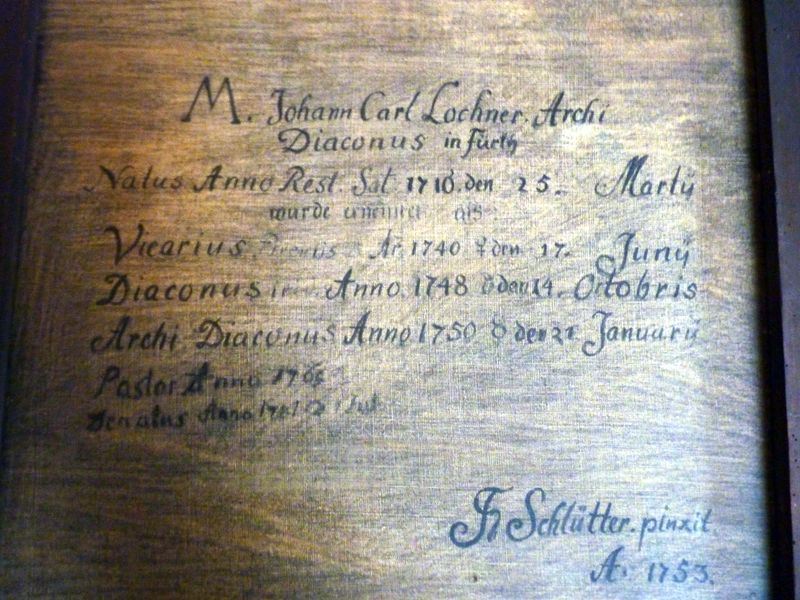 M. Johann Carl Lochner. Archi
Diaconus in Fürth
Natus Anno Rest. Sal. 1710. den 25. Martÿ
wurde ernennet als
Vicarius Ao. 1740 ☿ den 17. Junÿ
Diaconus Anno 1748 den 14. Octobris
Archi Diaconus Anno 1750 den 21 Januarÿ
Pastor Anno
Denatus Anno
Schlütter. pinxit
A. 1753.